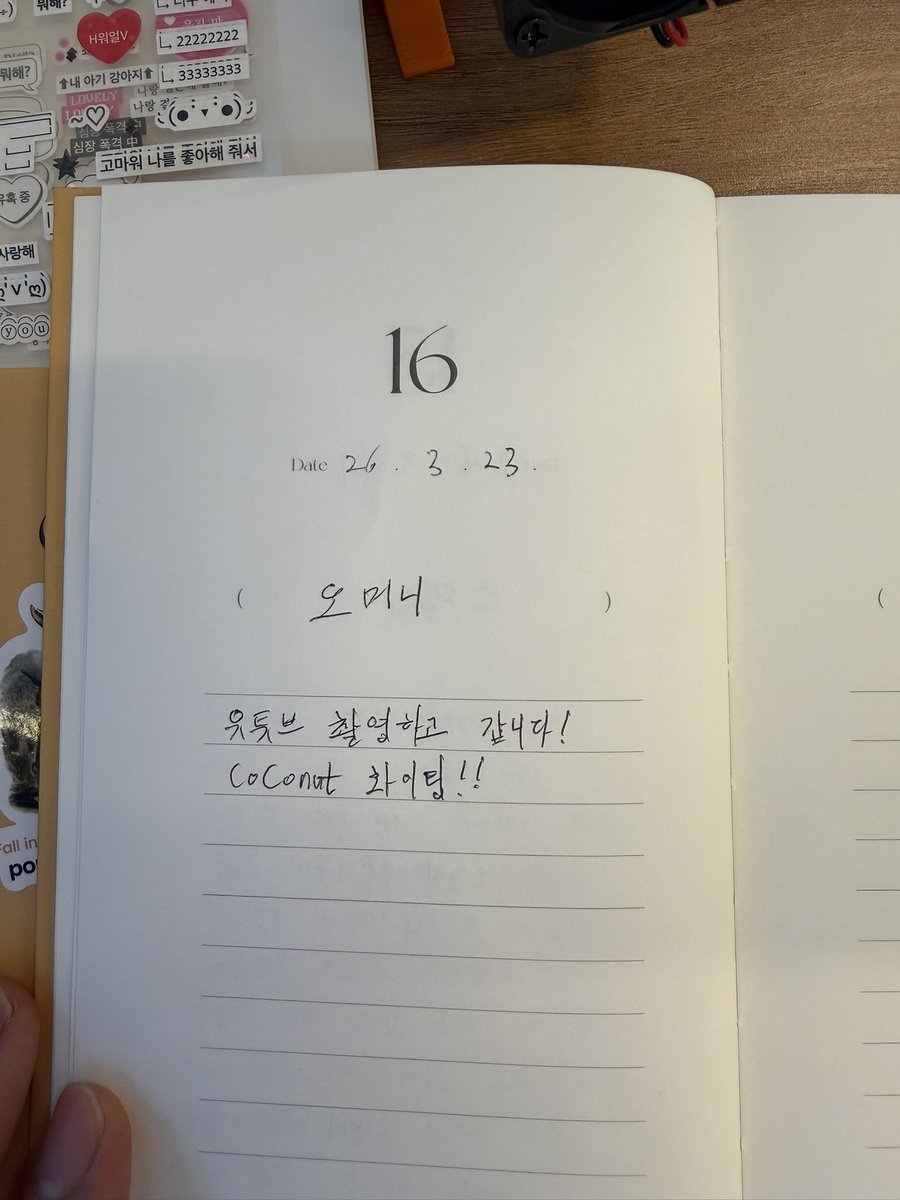 뭐해?
H워얼V
22222222
33333333
뭐해?
↑내 아기 강아지↑
LOVELY
~♡
심장 폭격 中
고마워 나를 좋아해 줘서
사랑해
you
16
Date 26 . 3 . 23 .
( 오머니 )
유튜브 촬영하고 갑니다!
CoConut 화이팅!!
(